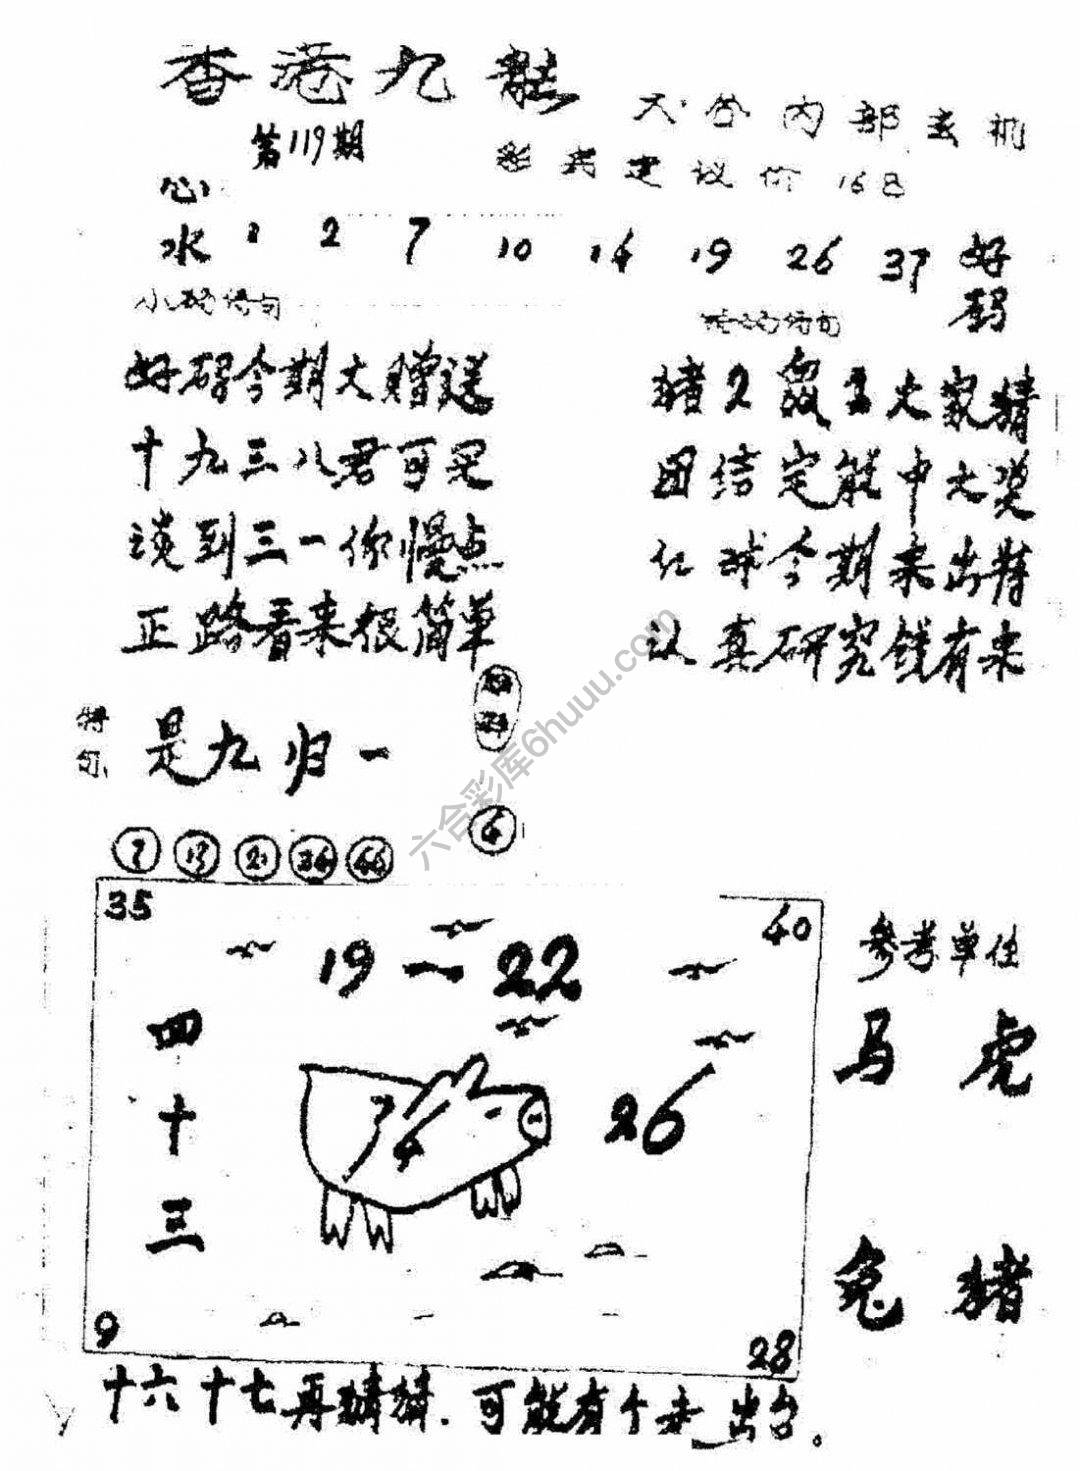 香港九龍
大谷内部玄机
第119期
彩券建议价 168
心水 1 2 7 10 14 19 26 37 好码
小码诗句
好码今期大赠送
十九三八君可见
谈到三一你慢点
正路看来很简单
猪2鼠3大家猜
团结定能中大奖
红球今期来出特
认真研究钱有来
特句 是九归一
7 13 21 34 46
4
35 40
19一22
四十三
26
9 28
参考单位
马 虎
兔 猪
十六十七再猜猜.可能有个走出台。
六合彩库6huuu.com